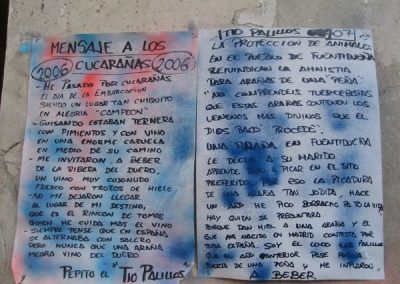 MENSAJE A LOS
2006 CUCARAÑAS 2006
- HE PASADO POR CUCARAÑAS
EL DIA DE LA EMBARCACION
SIENDO UN LUGAR TAN CHIQUITO
EN ALEGRIA "CAMPEON"
- GUISANDO ESTABAN TERNERA
CON PIMIENTOS Y CON VINO
EN UNA ENORME CAZUELA
EN MEDIO DE SU CAMINO
- ME INVITARON A BEBER
DE LA RIBERA DEL DUERO,
UN VINO MUY COJONUDO
FRESCO CON TROZOS DE HIELO
- NO ME DEJARON LLEGAR
AL LUGAR DE MI DESTINO,
QUE ES EL RINCON DE TOMAS
QUIEN ME CUIDA MAS EL VINO
- SIEMPRE PENSE QUE EN ESPAÑA
SE ALTERNABA CON SALERO
PERO NUNCA QUE UNA ARAÑA
MEARA VINO DEL DUERO
PEPITO EL "TIO PALILLOS"
TIO PALILLOS
LA PROTECCION DE ANIMALES
EN EL PUEBLO DE FUENTIDUEÑA
REIVINDICAN LA AMNISTIA
PARA ARAÑAS DE UNA "PEÑA"
NO COMPRENDEIS TUERCEBOTAS
QUE ESTAS ARAÑAS CONTIENEN LOS
VENENOS MAS DIVINOS QUE EL
DIOS "BACO" PROCEDE".
UNA EN FUENTIDUEÑA
LE DECIA A SU MARIDO
APRENDE A PICAR EN EL SITO
PREFERIDO, POR ESO LA PICADURA
DE UNA ARAÑA TAN JODIDA, HACE
UN AÑO ME PICO BORRACHO PA TO LA VIDA
HAY QUIEN SE PREGUNTARA
PORQUE TAN FIEL A UNA ARAÑA Y EL
QUE HA NACIDO EN MADRID CONTESTA POR
TODA ESPAÑA. SOY EL LOCO LOS PALILLOS
QUE EL AÑO ANTERIOR PASE
FUERA DE UNA "PEÑA" Y ME INVITARON
A BEBER